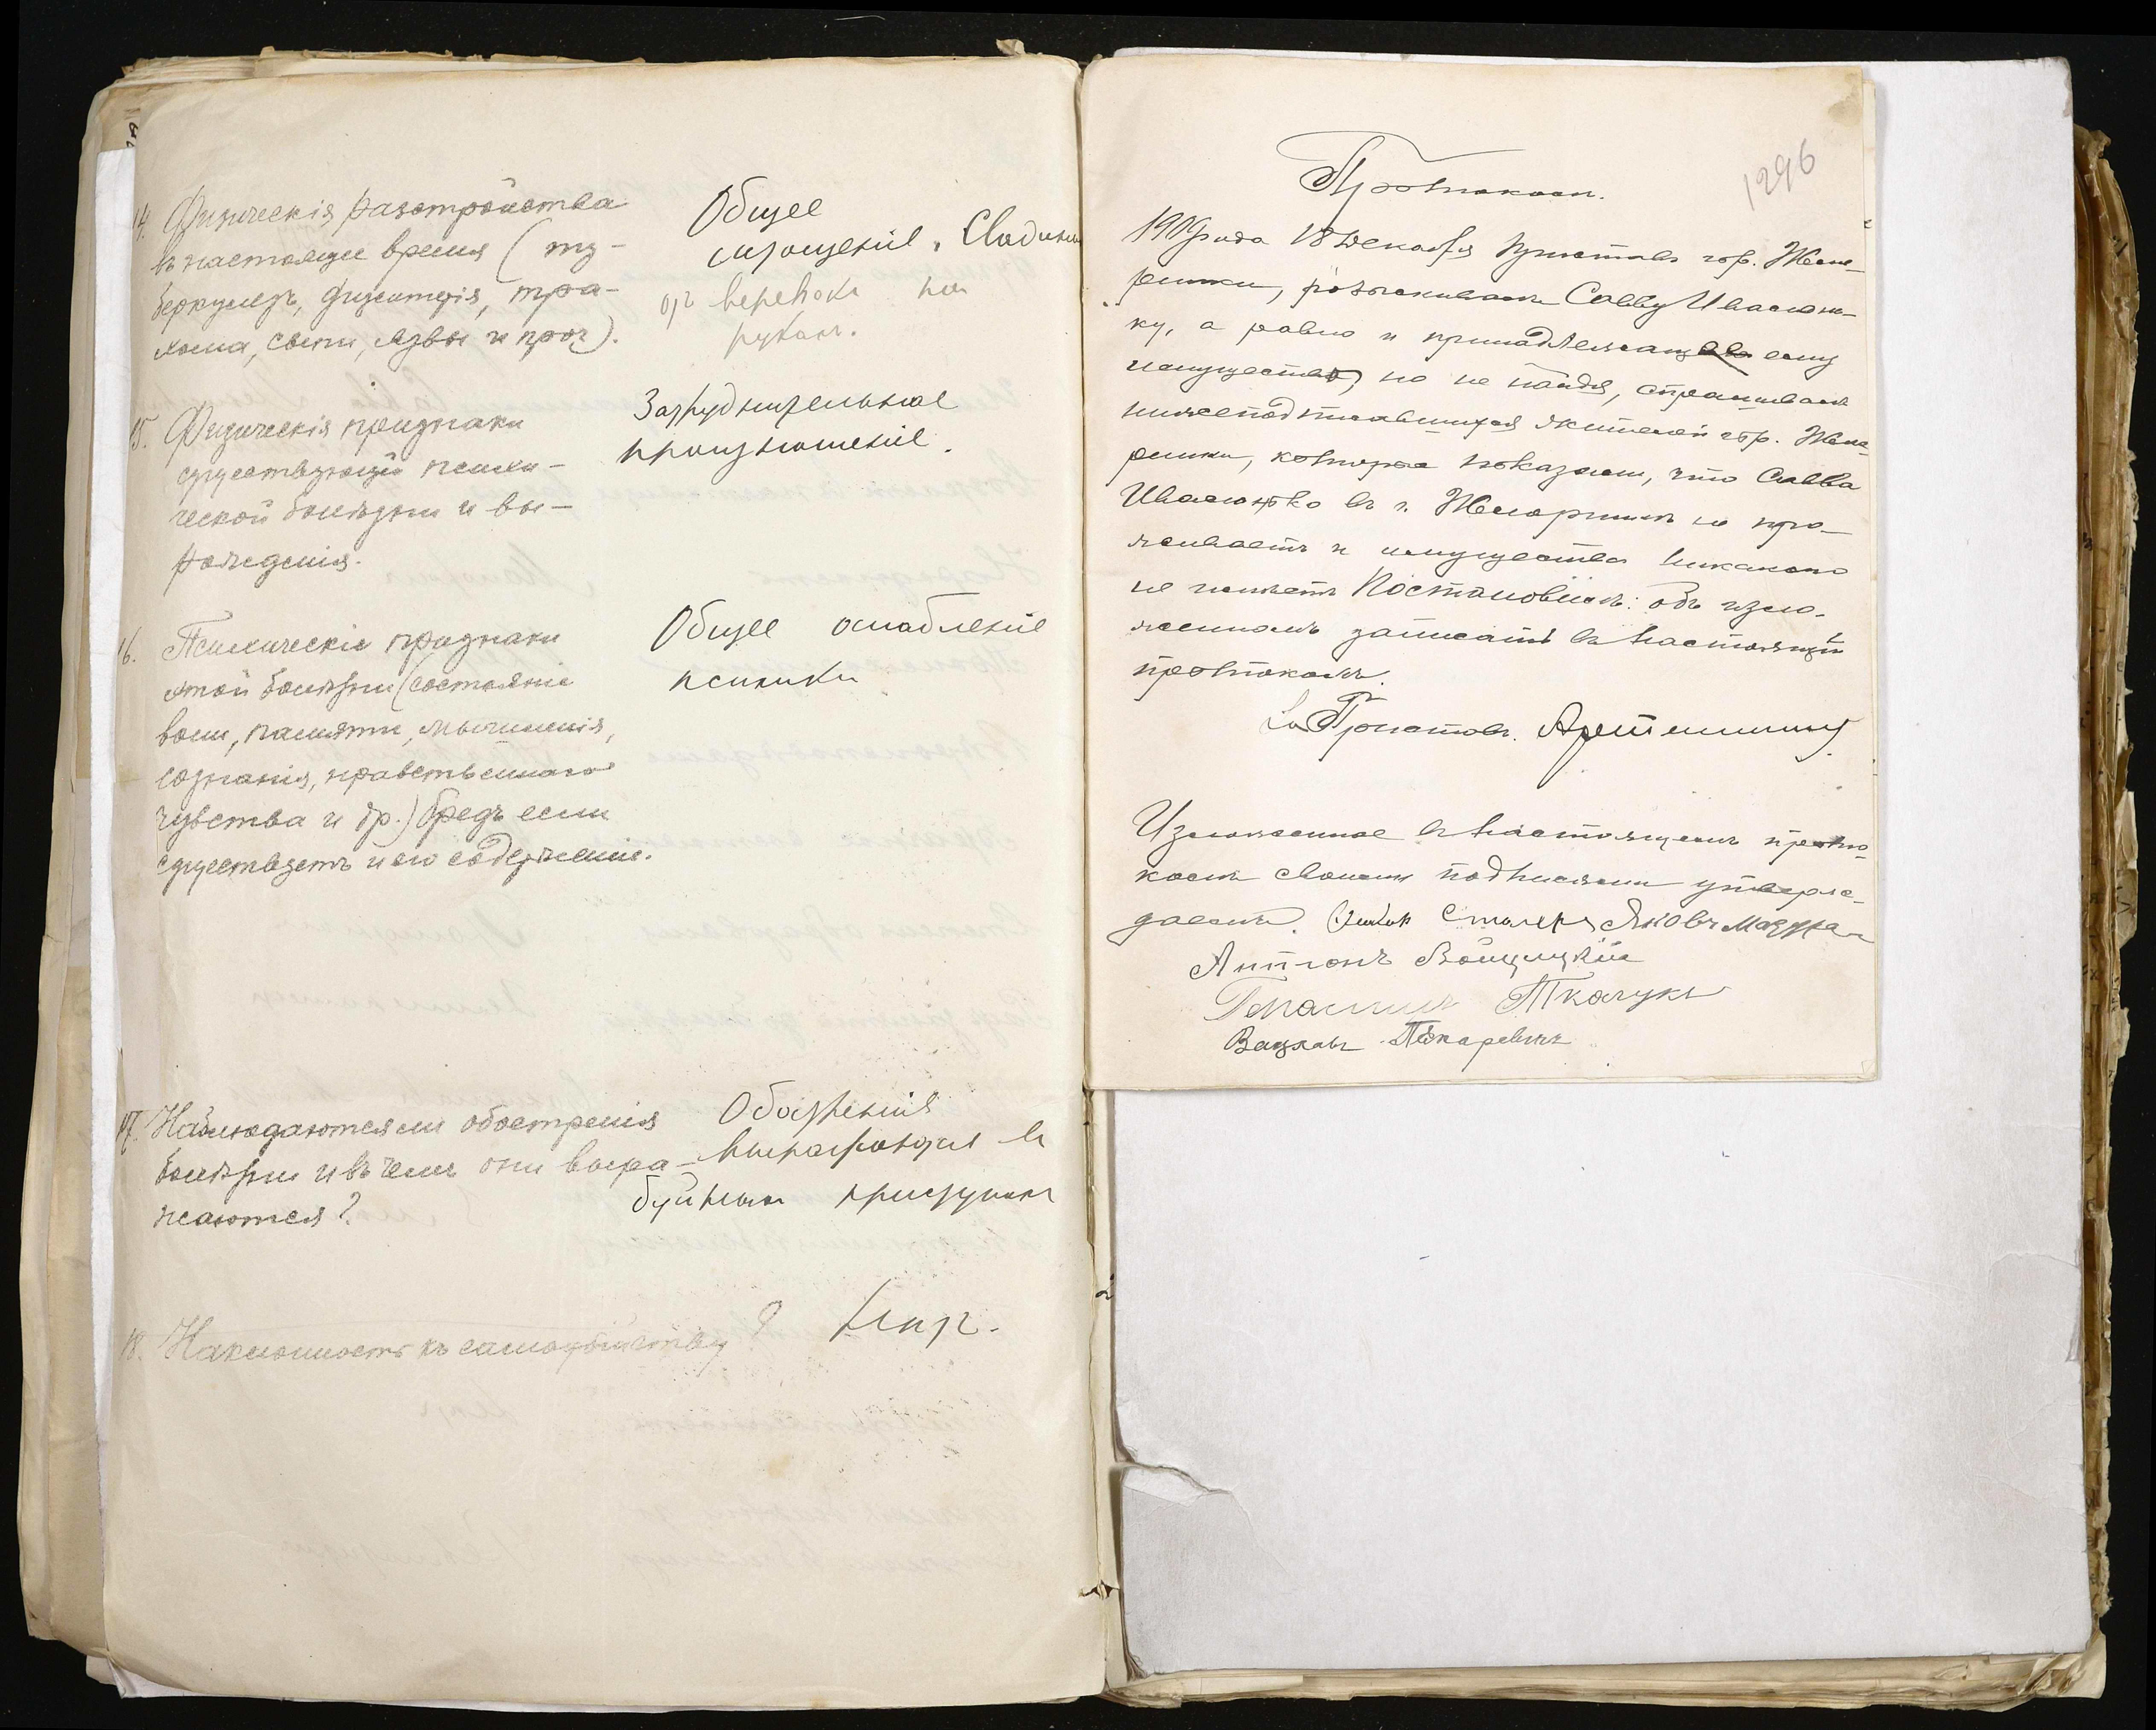 14. Физическія разстройства
въ настоящее время (ту-
беркулезъ, дизентерія, тра-
хома, сыпи, язвы и проч).
Общее
истощеніе. Ссадины
отъ веревокъ на
рукахъ.
15. Физическія признаки
существующей психи-
ческой болѣзни и вы-
рожденія.
Затруднительное
произношеніе.
16. Психическіе признаки
этой болѣзни (состояніе
воли, памяти, мышленія,
сознанія, нравственнаго
чувства и др.) бредъ если
существуетъ и его содержаніе.
Общее ослабленіе
психики
17. Наблюдаются ли обостренія
болѣзни и въ чемъ они выра-
жаются?
Обостренія
выражаются въ
буйныхъ приступахъ
18. Наклонность къ самоубійству?
Нѣтъ.
1296
Протоколъ.
1909 года 18 декабря Приставъ гор. Жме-
ринки, розыскивалъ Савву Ивасюн-
ку, а равно и принадлежащ ему
имущество, но не найдя, спрашивалъ
нижеподписавшихся жителей гор. Жме-
ринки, которые показали, что Савва
Ивасюнко въ г. Жмеринкѣ не про-
живаетъ и имущества никакого
не имѣетъ Постановилъ: объ изло-
женномъ записать въ настоящій
протоколъ.
Приставъ
Изложенное въ настоящемъ прото-
колѣ своими подписями утверж-
даемъ. Столяръ Яковъ
Антонъ Войцицкій
Ткачукъ
Вацлавъ